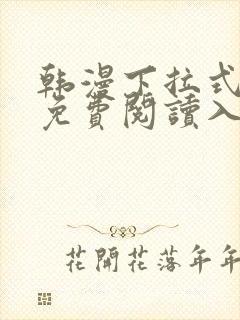 韩漫下拉式
免費閱讀入
花開花落年年